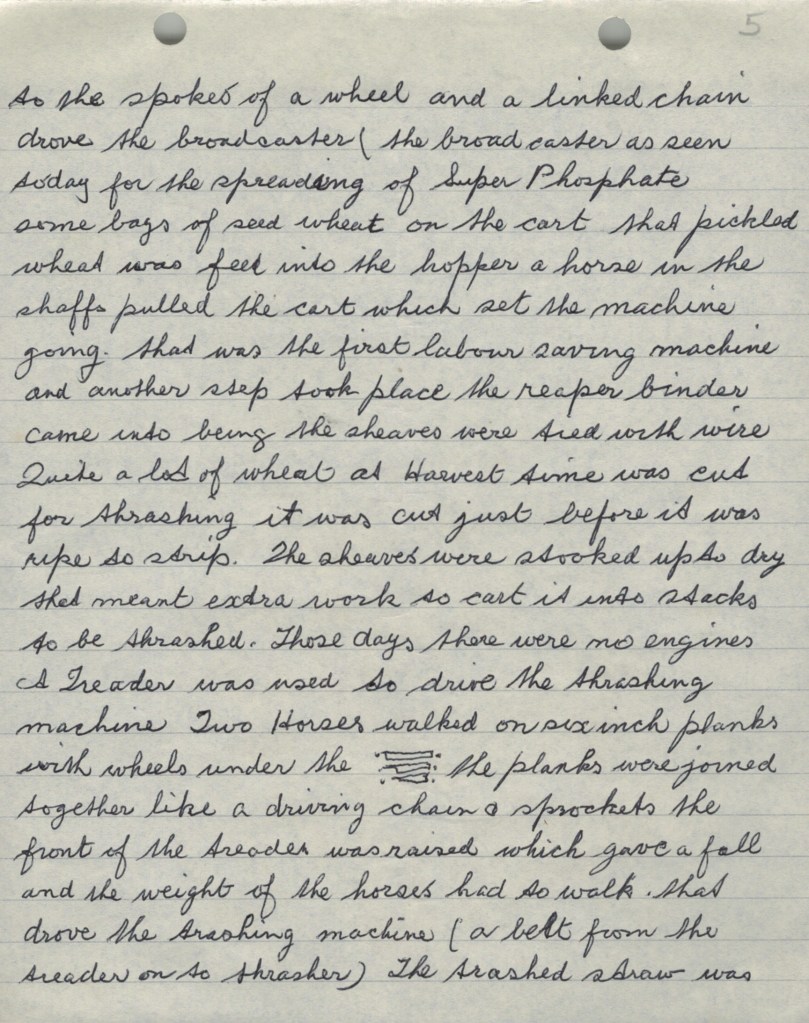 5
to the spokes of a wheel and a linked chain
drove the broadcaster ( the broad caster as seen
today for the spreading of Super Phosphate
some bags of seed wheat on the cart that pickled
wheat was feed into the hopper a horse in the
shafts pulled the cart which set the machine
going. that was the first labour saving machine
and another step took place the reaper binder
came into being the sheaves were tied with wire
Quite a lot of wheat at Harvest time was cut
for thrashing it was cut just before it was
ripe to strip. The sheaves were stooked up to dry
that meant extra work to cart it into stacks
to be thrashed. Those days there were no engines
A Treader was used to drive the thrashing
machine Two Horses walked on six inch planks
with wheels under the the planks were joined
together like a driving chain & sprockets the
front of the treader was raised which gave a fall
and the weight of the horses had to walk. that
drove the trashing machine ( a belt from the
treader on to thrasher) The trashed straw was